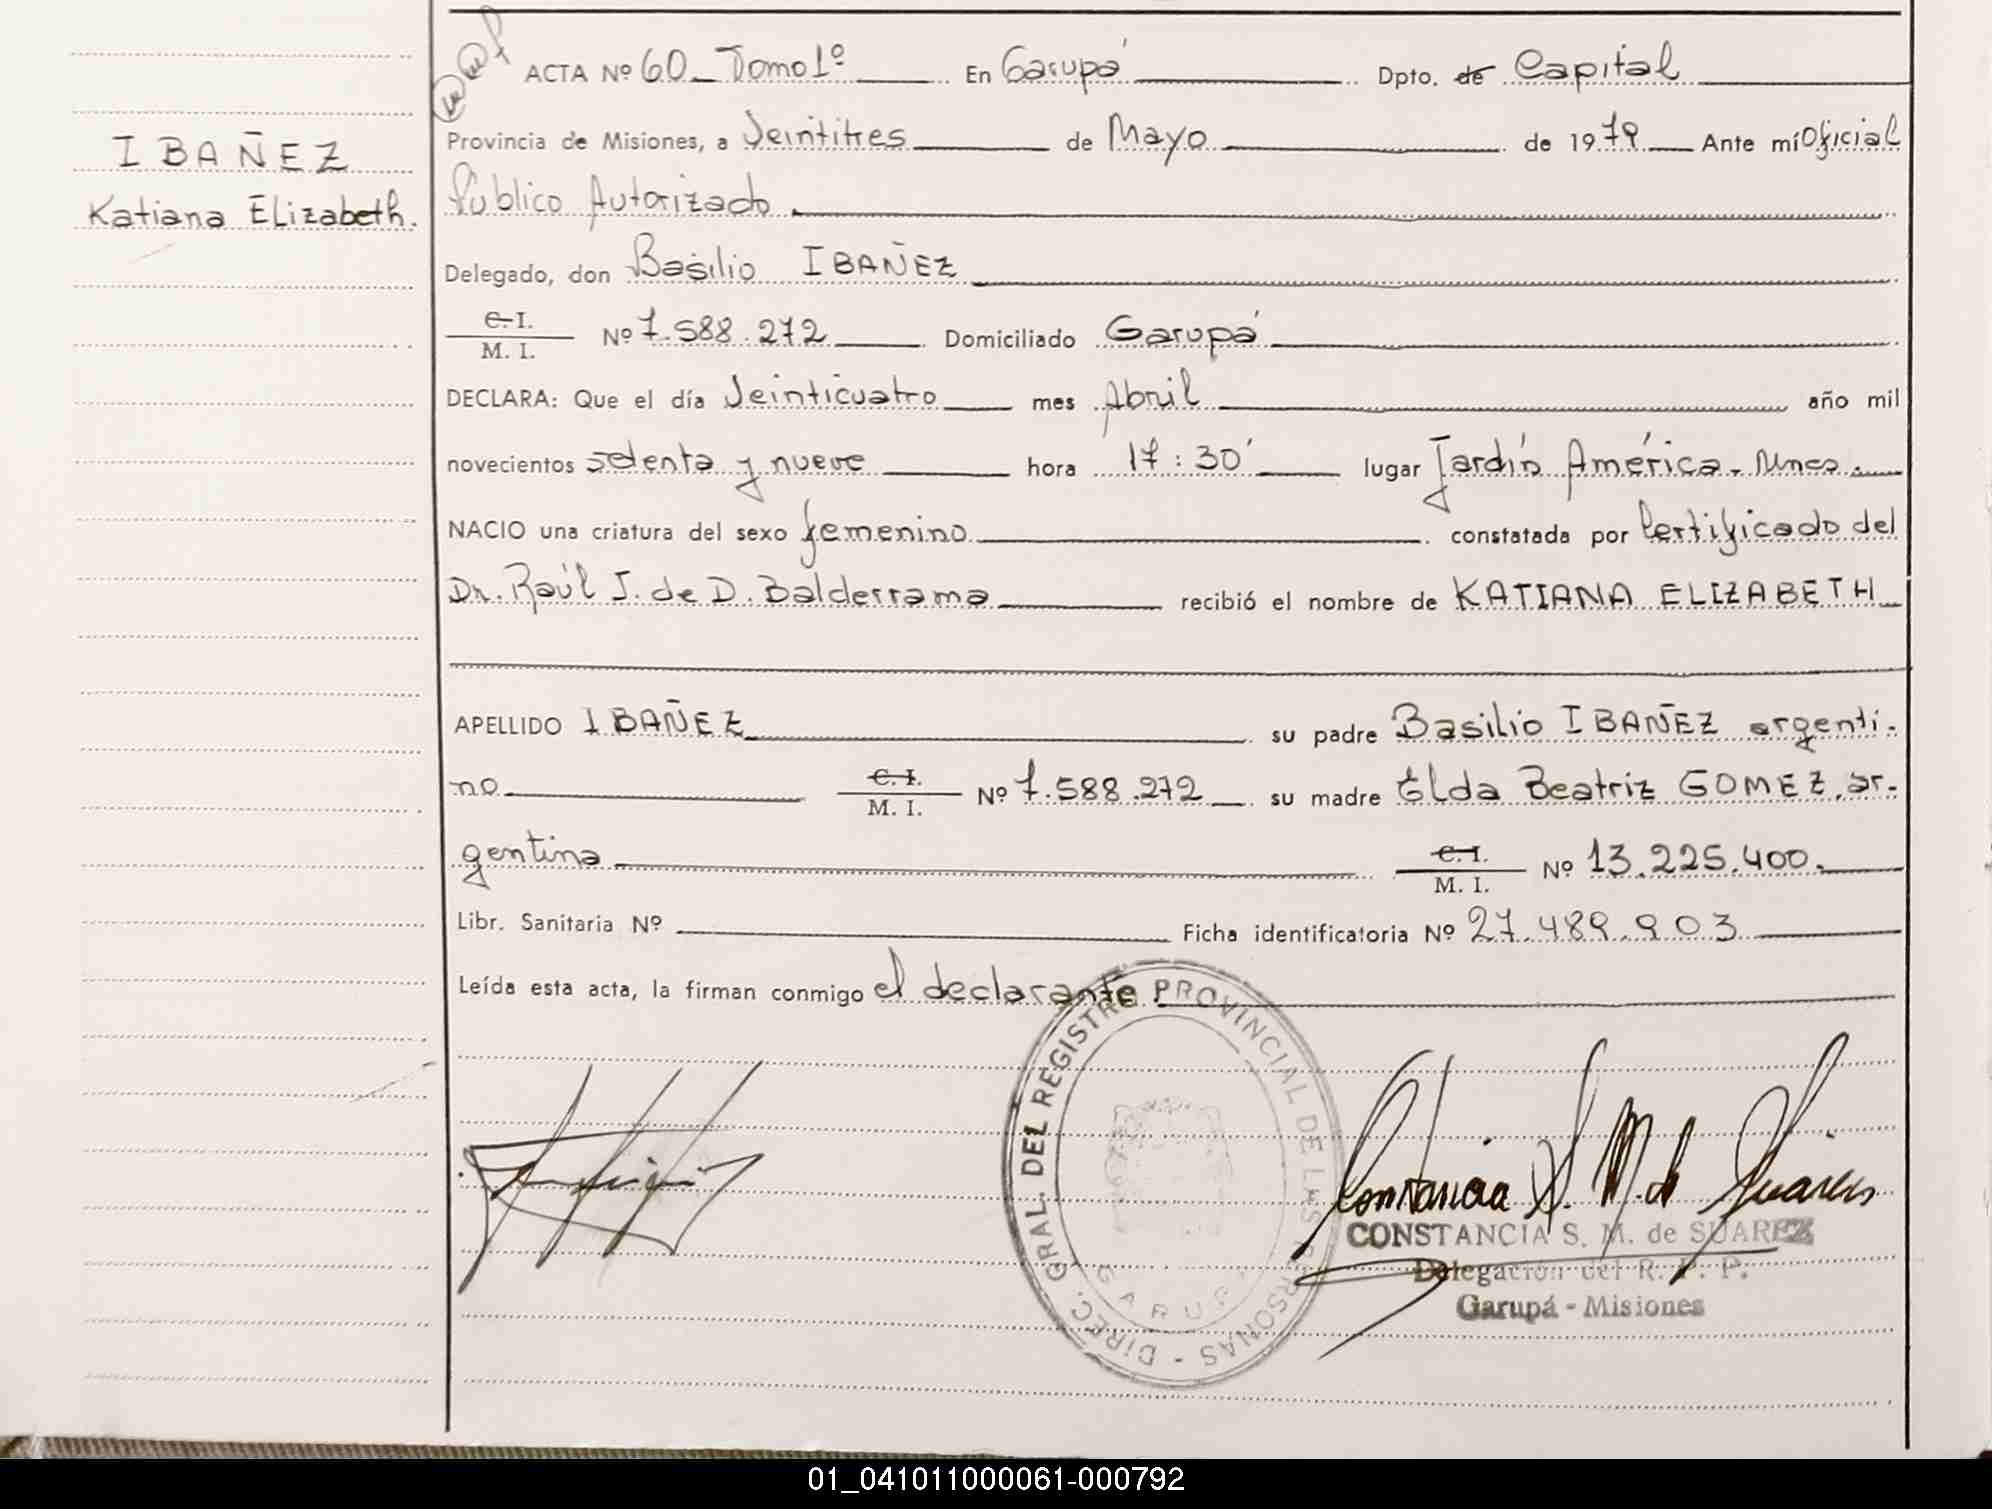 ACTA Nº 60 Tomo 1º En Garupá Dpto. de Capital
Provincia de Misiones, a Veintitres de Mayo de 1979 Ante mí Oficial
Público Autorizado
IBAÑEZ
Katiana Elizabeth.
Delegado, don Basilio IBAÑEZ
C.I.
M. I. Nº 7.588.272 Domiciliado Garupá
DECLARA: Que el día Veinticuatro mes Abril año mil
novecientos setenta y nueve hora 17:30' lugar Jardín América - Mnes.
NACIO una criatura del sexo femenino constatada por Certificado del
Dr. Raúl J. de D. Balderrama recibió el nombre de KATIANA ELIZABETH
APELLIDO IBAÑEZ su padre Basilio IBAÑEZ argenti-
no C.I.
M. I. Nº 7.588.272 su madre Elda Beatriz GOMEZ, ar-
gentina C.I.
M. I. Nº 13.225.400.
Libr. Sanitaria Nº Ficha identificatoria Nº 27.489.903
Leída esta acta, la firman conmigo el declarante
DIREC. GRAL. DEL REGISTRO PROVINCIAL DE LAS PERSONAS -
GARUPA
Constancia S. M. de Suárez
CONSTANCIA S. M. de SUAREZ
Delegación del R. P. P.
Garupá - Misiones
01_041011000061-000792